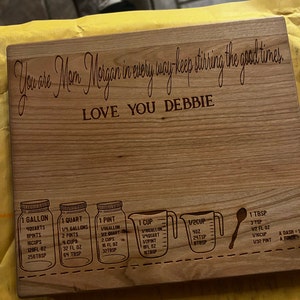 You are Mom Morgan in every way-keep stirring the good times.
LOVE YOU DEBBIE
1 GALLON
4 QUARTS
8 PINTS
16 CUPS
128 FL OZ
256 TBSP
1 QUART
1/4 GALLONS
2 PINTS
4 CUPS
32 FL OZ
64 TBSP
1 PINT
2 CUPS
16 FL OZ
32 TBSP
1 CUP
1/2 PINT
8 FL OZ
16 TBSP
1/2 CUP
4 OZ
24 TSP
8 TBSP
1 TBSP
3 TSP
1/2 FL OZ
1/16 CUP
1/32 PINT
A DASH